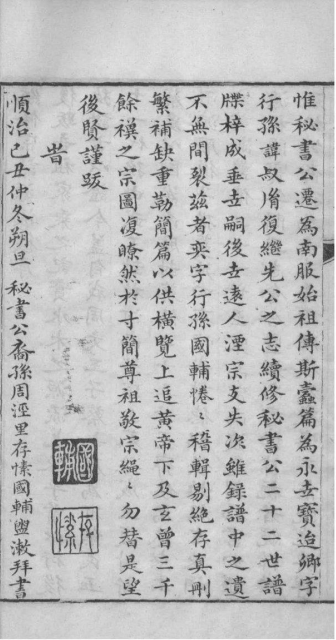 惟秘書公遷為南服始祖傳斯蠹篇為永世寶迨卿字
行孫諱叔脩復繼先公之志續修秘書公二十二世譜
牒梓成垂世嗣後世遠人湮宗支失次雖錄譜中之遺
不無間裂茲者奕字行孫國輔惓〻稽輯剔絶存真刪
繁補缺重勒簡篇以供橫覽上追黃帝下及玄曾三千
餘禩之宗國復瞭然於寸簡尊祖敬宗繩〻勿替是望
後賢謹跋
旹
順治己丑仲冬朔旦 秘書公裔孫周涇里存愫國輔盥漱拜書
國輔
存愫